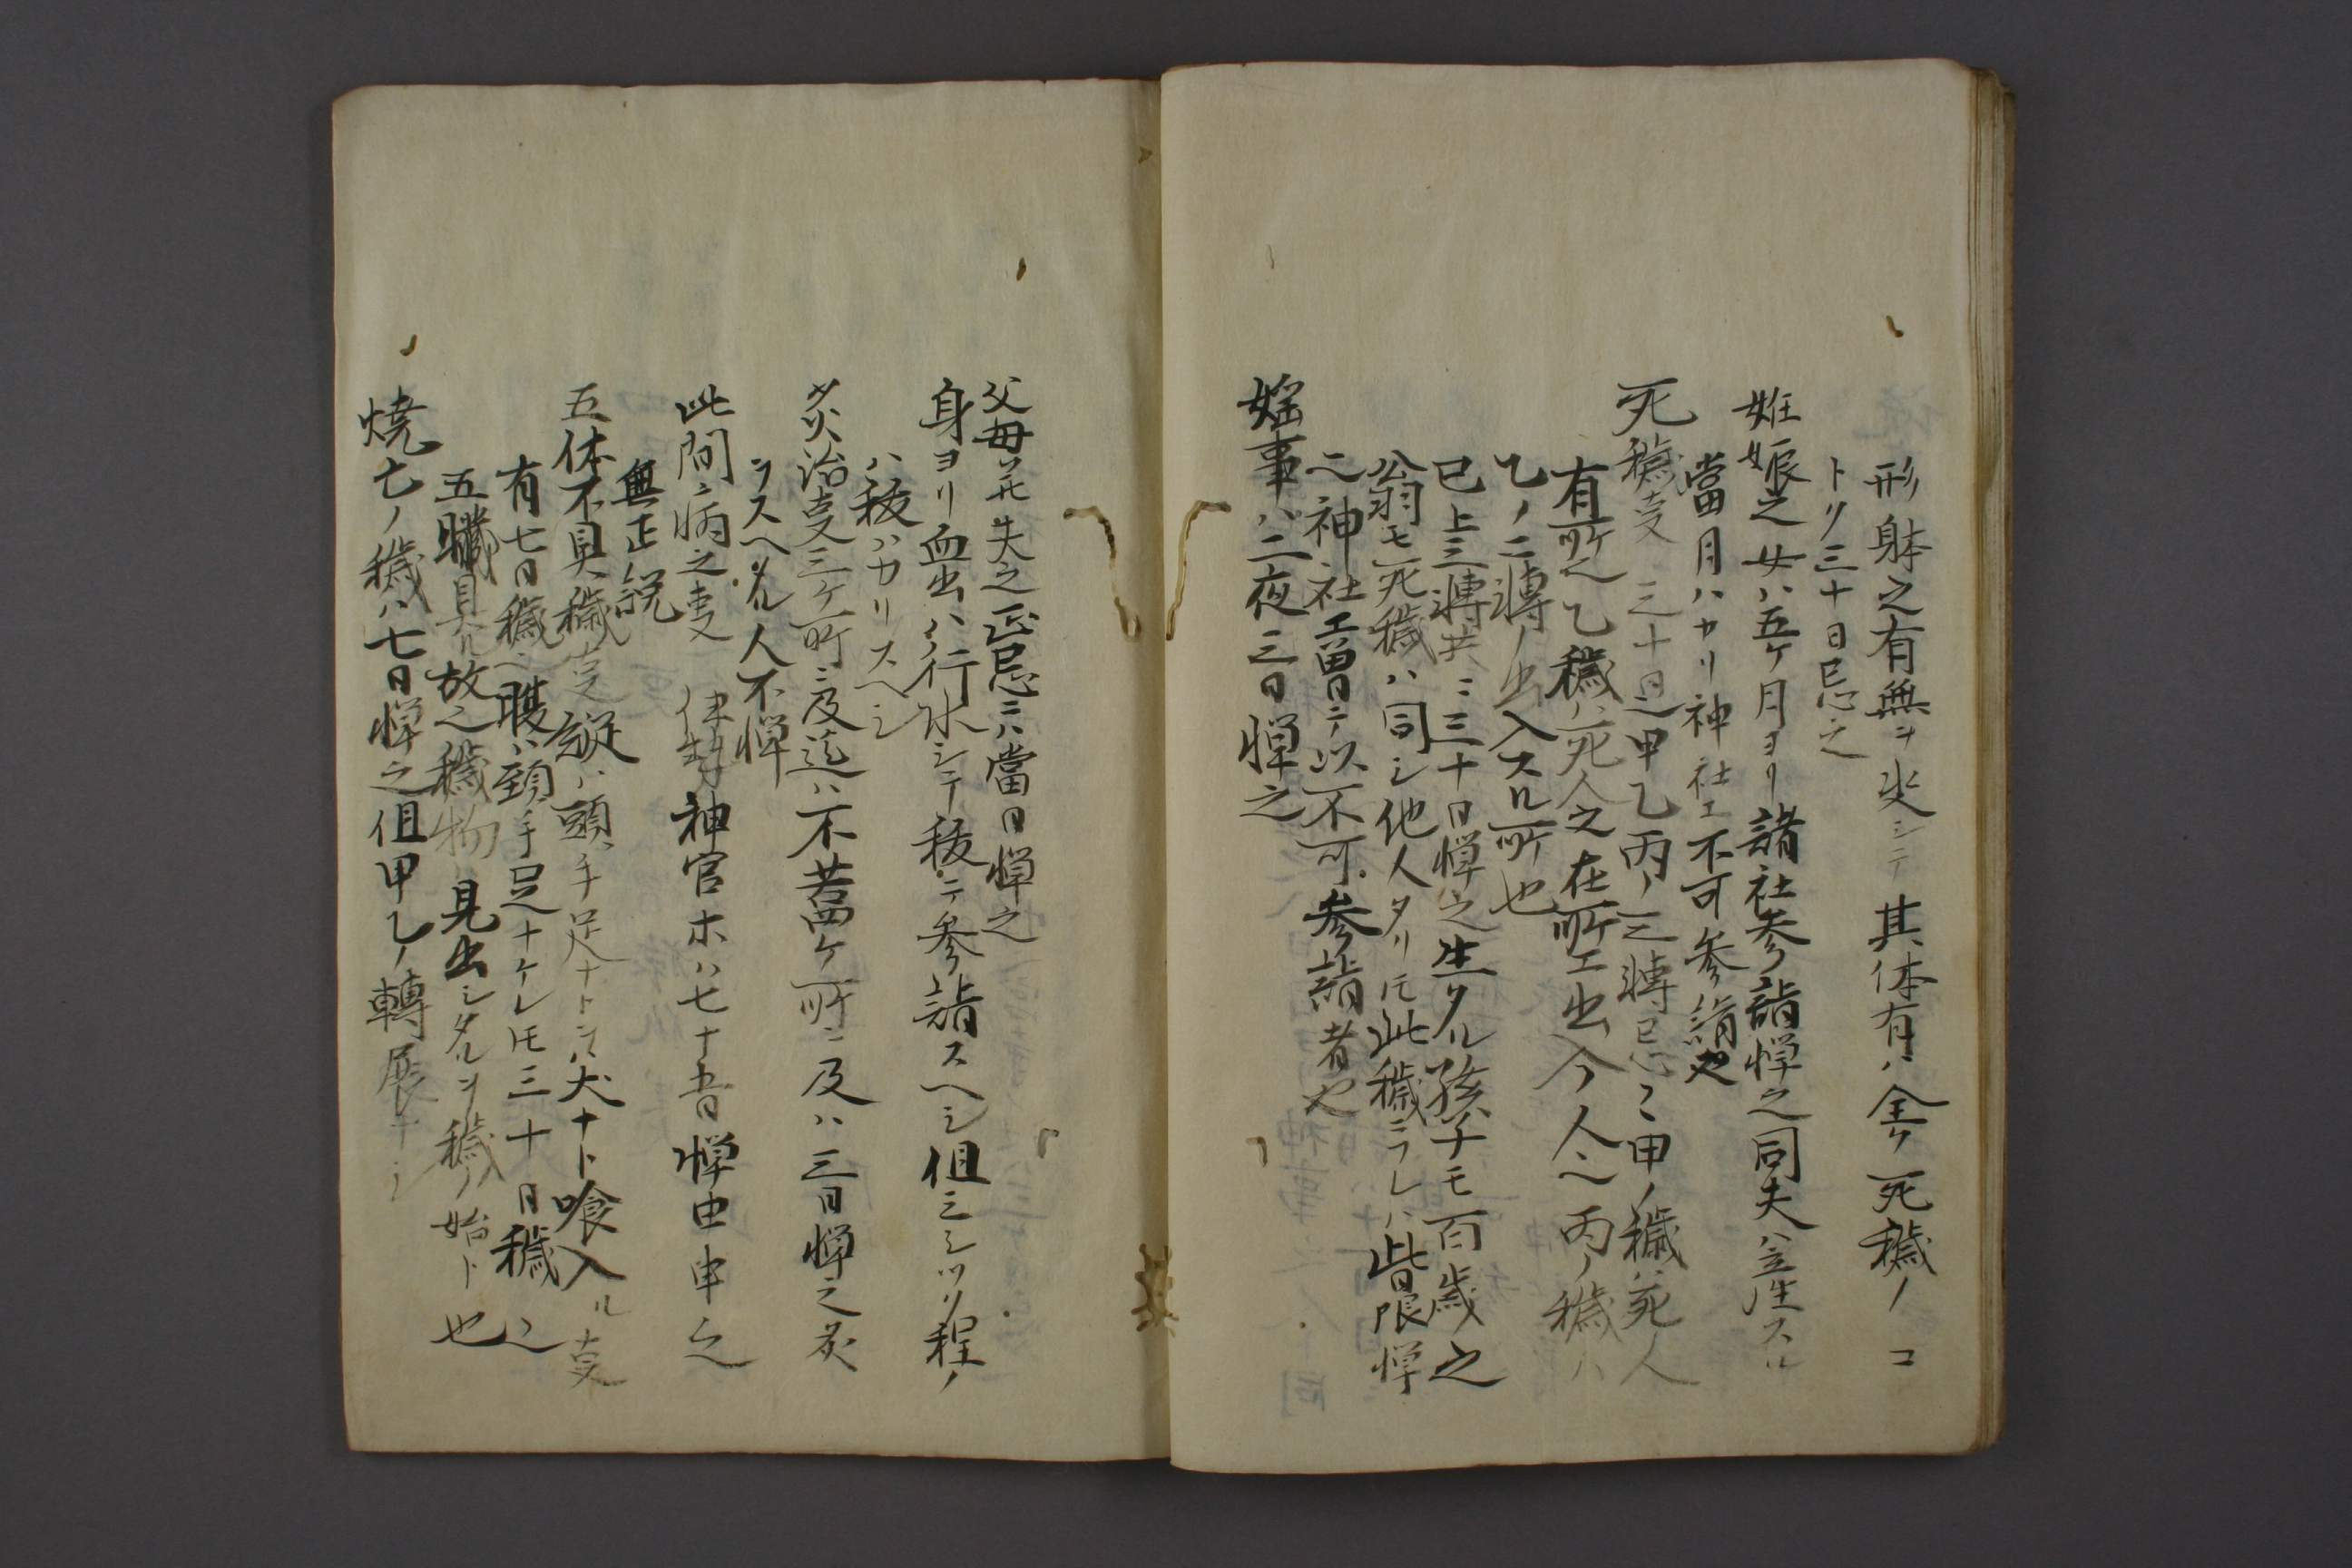 形躰之有無ヲ *シテ其体有ハ全ク死穢ノコ
トリ三十日忌之
妊娠之女ハ五ケ月ヨリ諸社参詣憚之同夫ハ産スル
當月ハカリ神社エ不可参詣也
死穢事 三十日之甲乙丙ノ三轉忌之甲ノ穢ハ死人
有所之乙穢ハ死人之在所エ出入ノ人之丙ノ穢ハ
乙ノ二轉ノ出入スル所也
已上三轉共ニ三十日憚之生タル孩子モ百歳之
翁モ死穢ハ同シ他人タリ圧此穢ニフレハ皆限憚
之神社エ曽テ以不可参詣者也
婬事ハ二夜三日憚之
父母并失之正忌ニハ當日憚之
身ヨリ血出ハ行水シテ祓ニテ参詣スヘシ但ミシツノ程ノ
ハ祓ハカリスヘシ
灸治事三ケ所ニ及迄ハ不苦四ケ所ニ及ハ三日憚之灸
ヲスヘタル人不憚
此間ニ病之事 神官ホハ七十五日憚由申之
無正説
五体不具穢事縦ハ頭手足ナトヲ犬ナト喰入ル事
有七日穢之腹ハ頭手足ナケレ圧三十日穢之
五臓具スル故之穢物見出シタルヲ穢ノ始ト也
焼亡ノ穢ハ七日憚之但甲乙ノ轉展ナシ